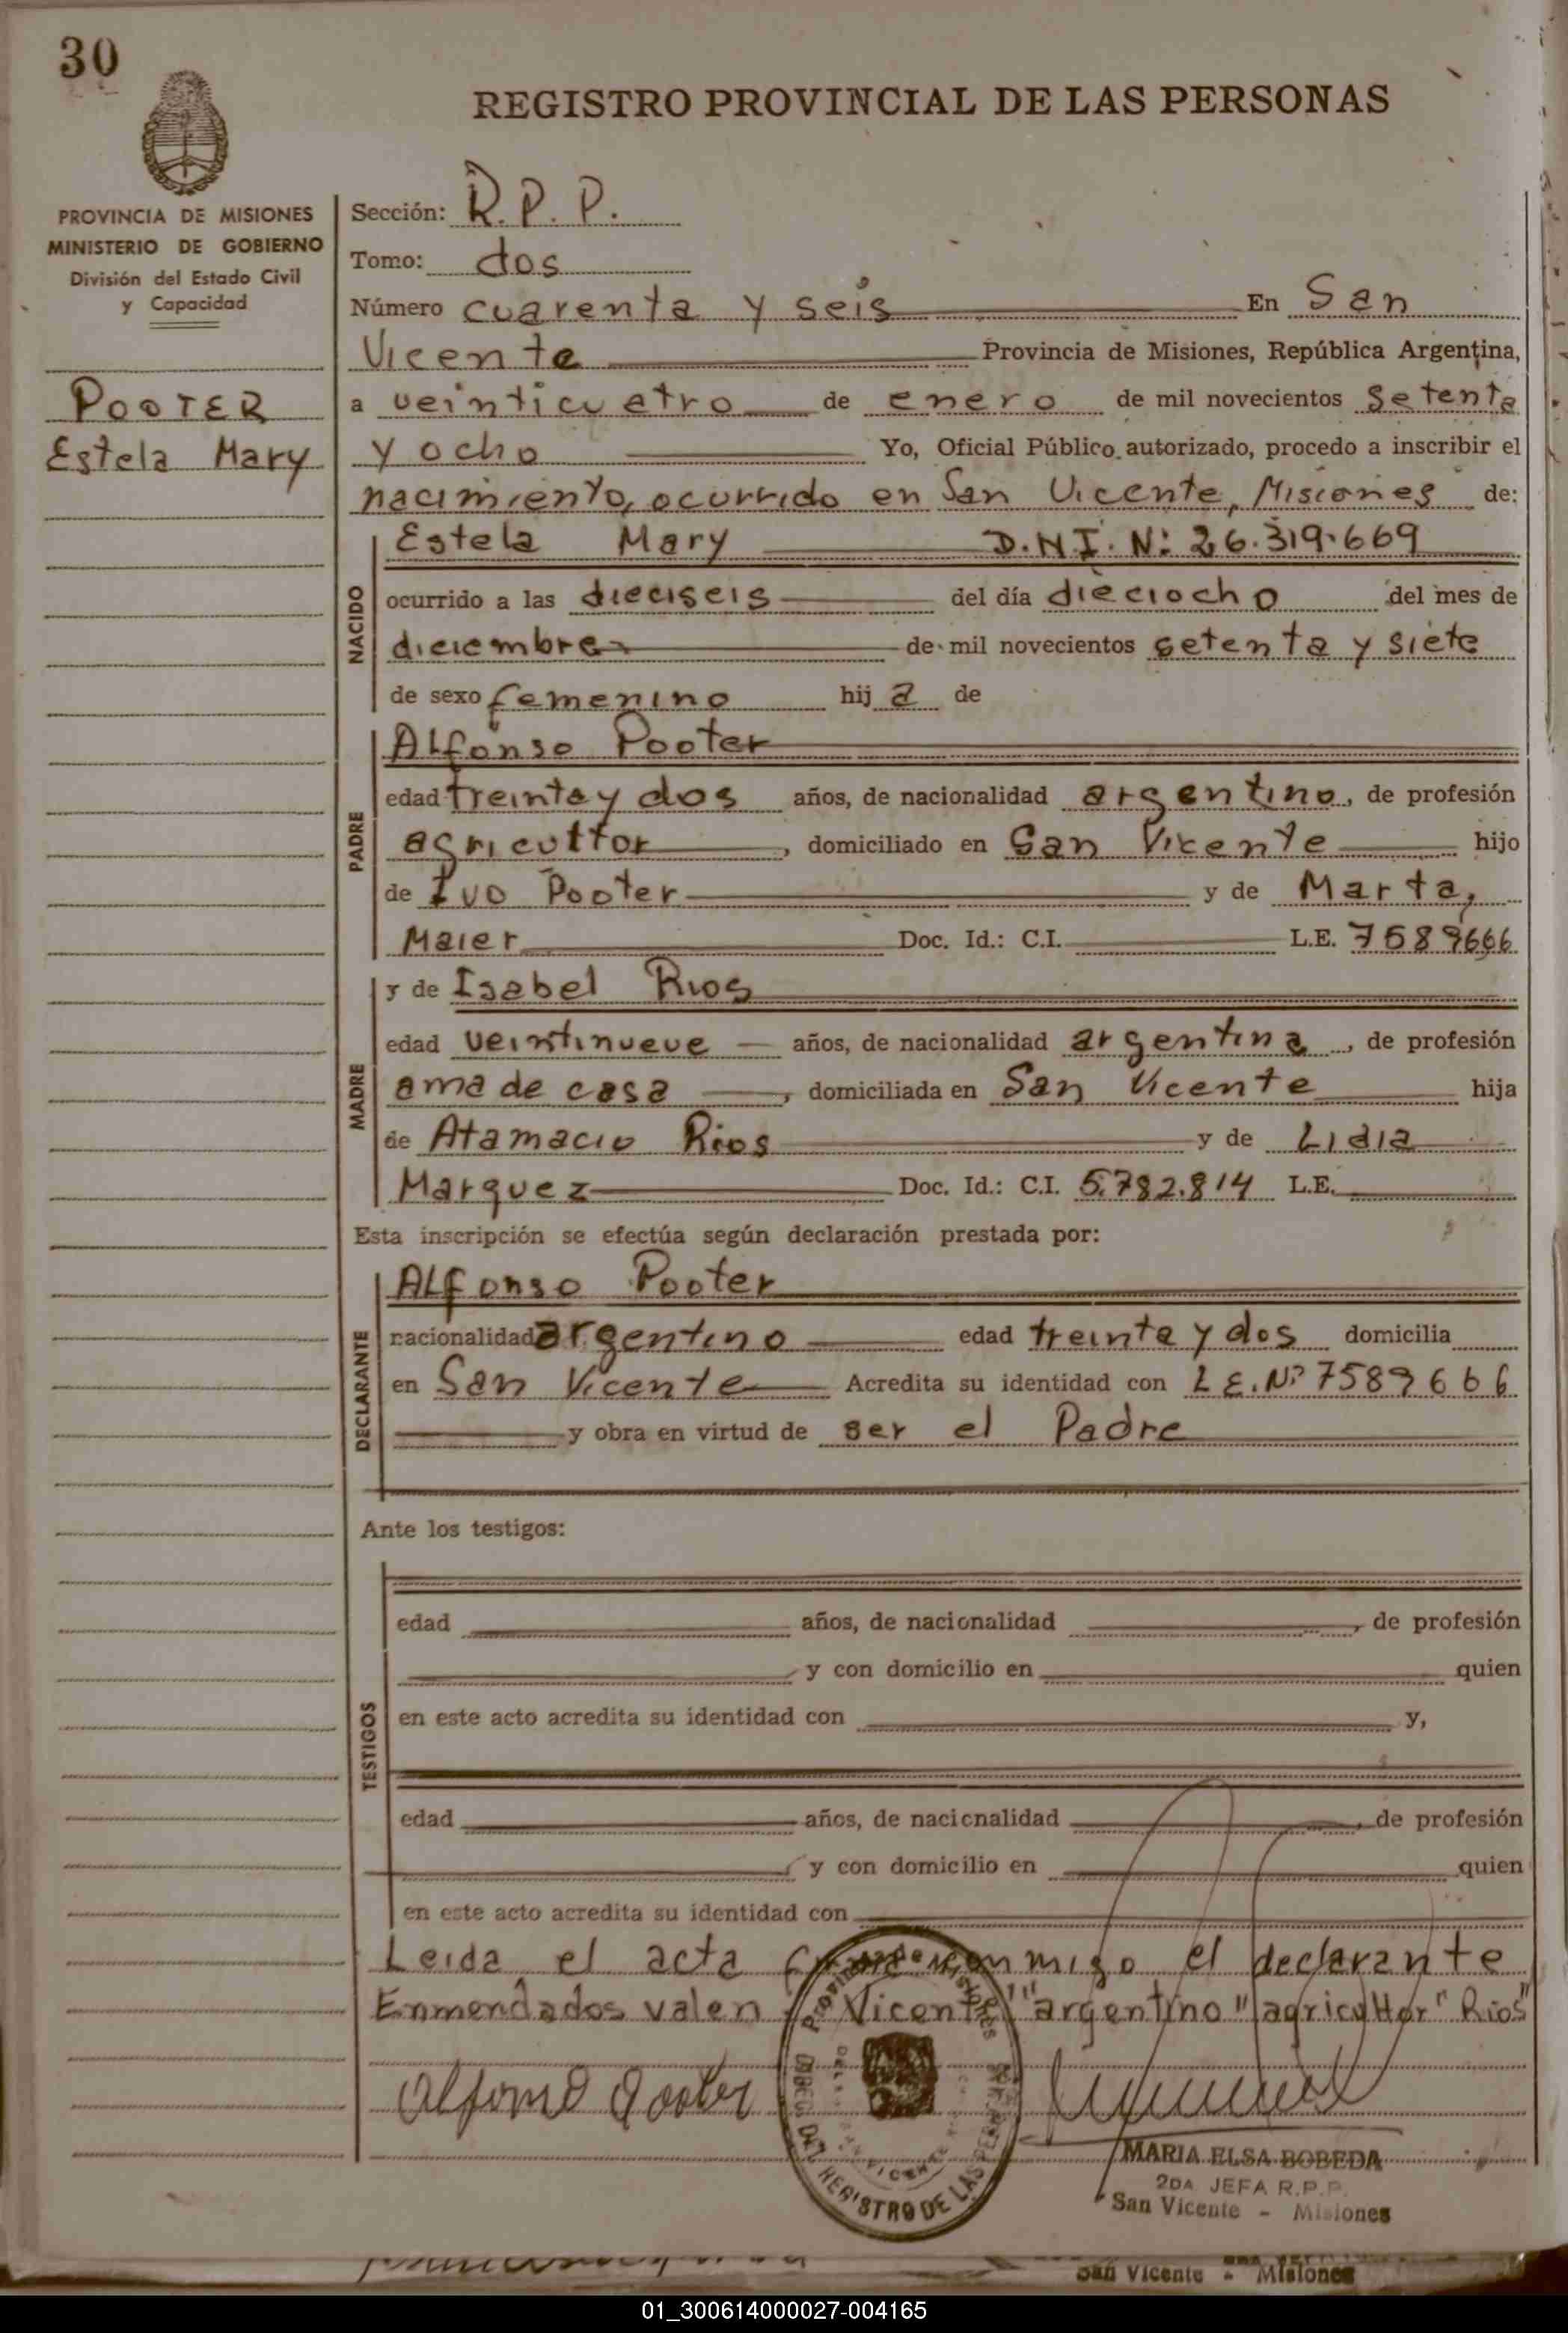 30
REGISTRO PROVINCIAL DE LAS PERSONAS
PROVINCIA DE MISIONES
MINISTERIO DE GOBIERNO
División del Estado Civil
y Capacidad
POOTER
Estela Mary
Sección: R. P. P.
Tomo: dos
Número cuarenta y seis En San
Vicente Provincia de Misiones, República Argentina,
a veinticuatro de enero de mil novecientos setenta
y ocho Yo, Oficial Público autorizado, procedo a inscribir el
nacimiento, ocurrido en San Vicente, Misiones de:
NACIDO
Estela Mary D.N.I. N: 26.319.669
ocurrido a las dieciseis del día dieciocho del mes de
diciembre de mil novecientos setenta y siete
de sexo femenino hij a de
PADRE
Alfonso Pooter
edad treinta y dos años, de nacionalidad argentino, de profesión
agricultor, domiciliado en San Vicente hijo
de Ivo Pooter y de Marta,
Maier Doc. Id.: C.I. L.E. 7589666
MADRE
y de Isabel Rios
edad veintinueve años, de nacionalidad argentina, de profesión
ama de casa, domiciliada en San Vicente hija
de Atamacio Rios y de Lidia
Marquez Doc. Id.: C.I. 5.782.814 L.E.
Esta inscripción se efectúa según declaración prestada por:
DECLARANTE
Alfonso Pooter
nacionalidad argentino edad treinta y dos domicilia
en San Vicente Acredita su identidad con L.E. Nº 7589666
y obra en virtud de ser el Padre
Ante los testigos:
TESTIGOS
edad años, de nacionalidad, de profesión
y con domicilio en quien
en este acto acredita su identidad con y,
edad años, de nacionalidad, de profesión
y con domicilio en quien
en este acto acredita su identidad con
Leida el acta conmigo el declarante
Enmendados valen "Vicente" "argentino" "agricultor" "Rios"
Alfonso Pooter
PROVINCIA DE MISIONES
DEL REGISTRO DE LAS PERSONAS
SAN VICENTE
MARIA ELSA BOBEDA
2DA JEFA R.P.P.
San Vicente - Misiones
San Vicente - Misiones
01_300614000027-004165